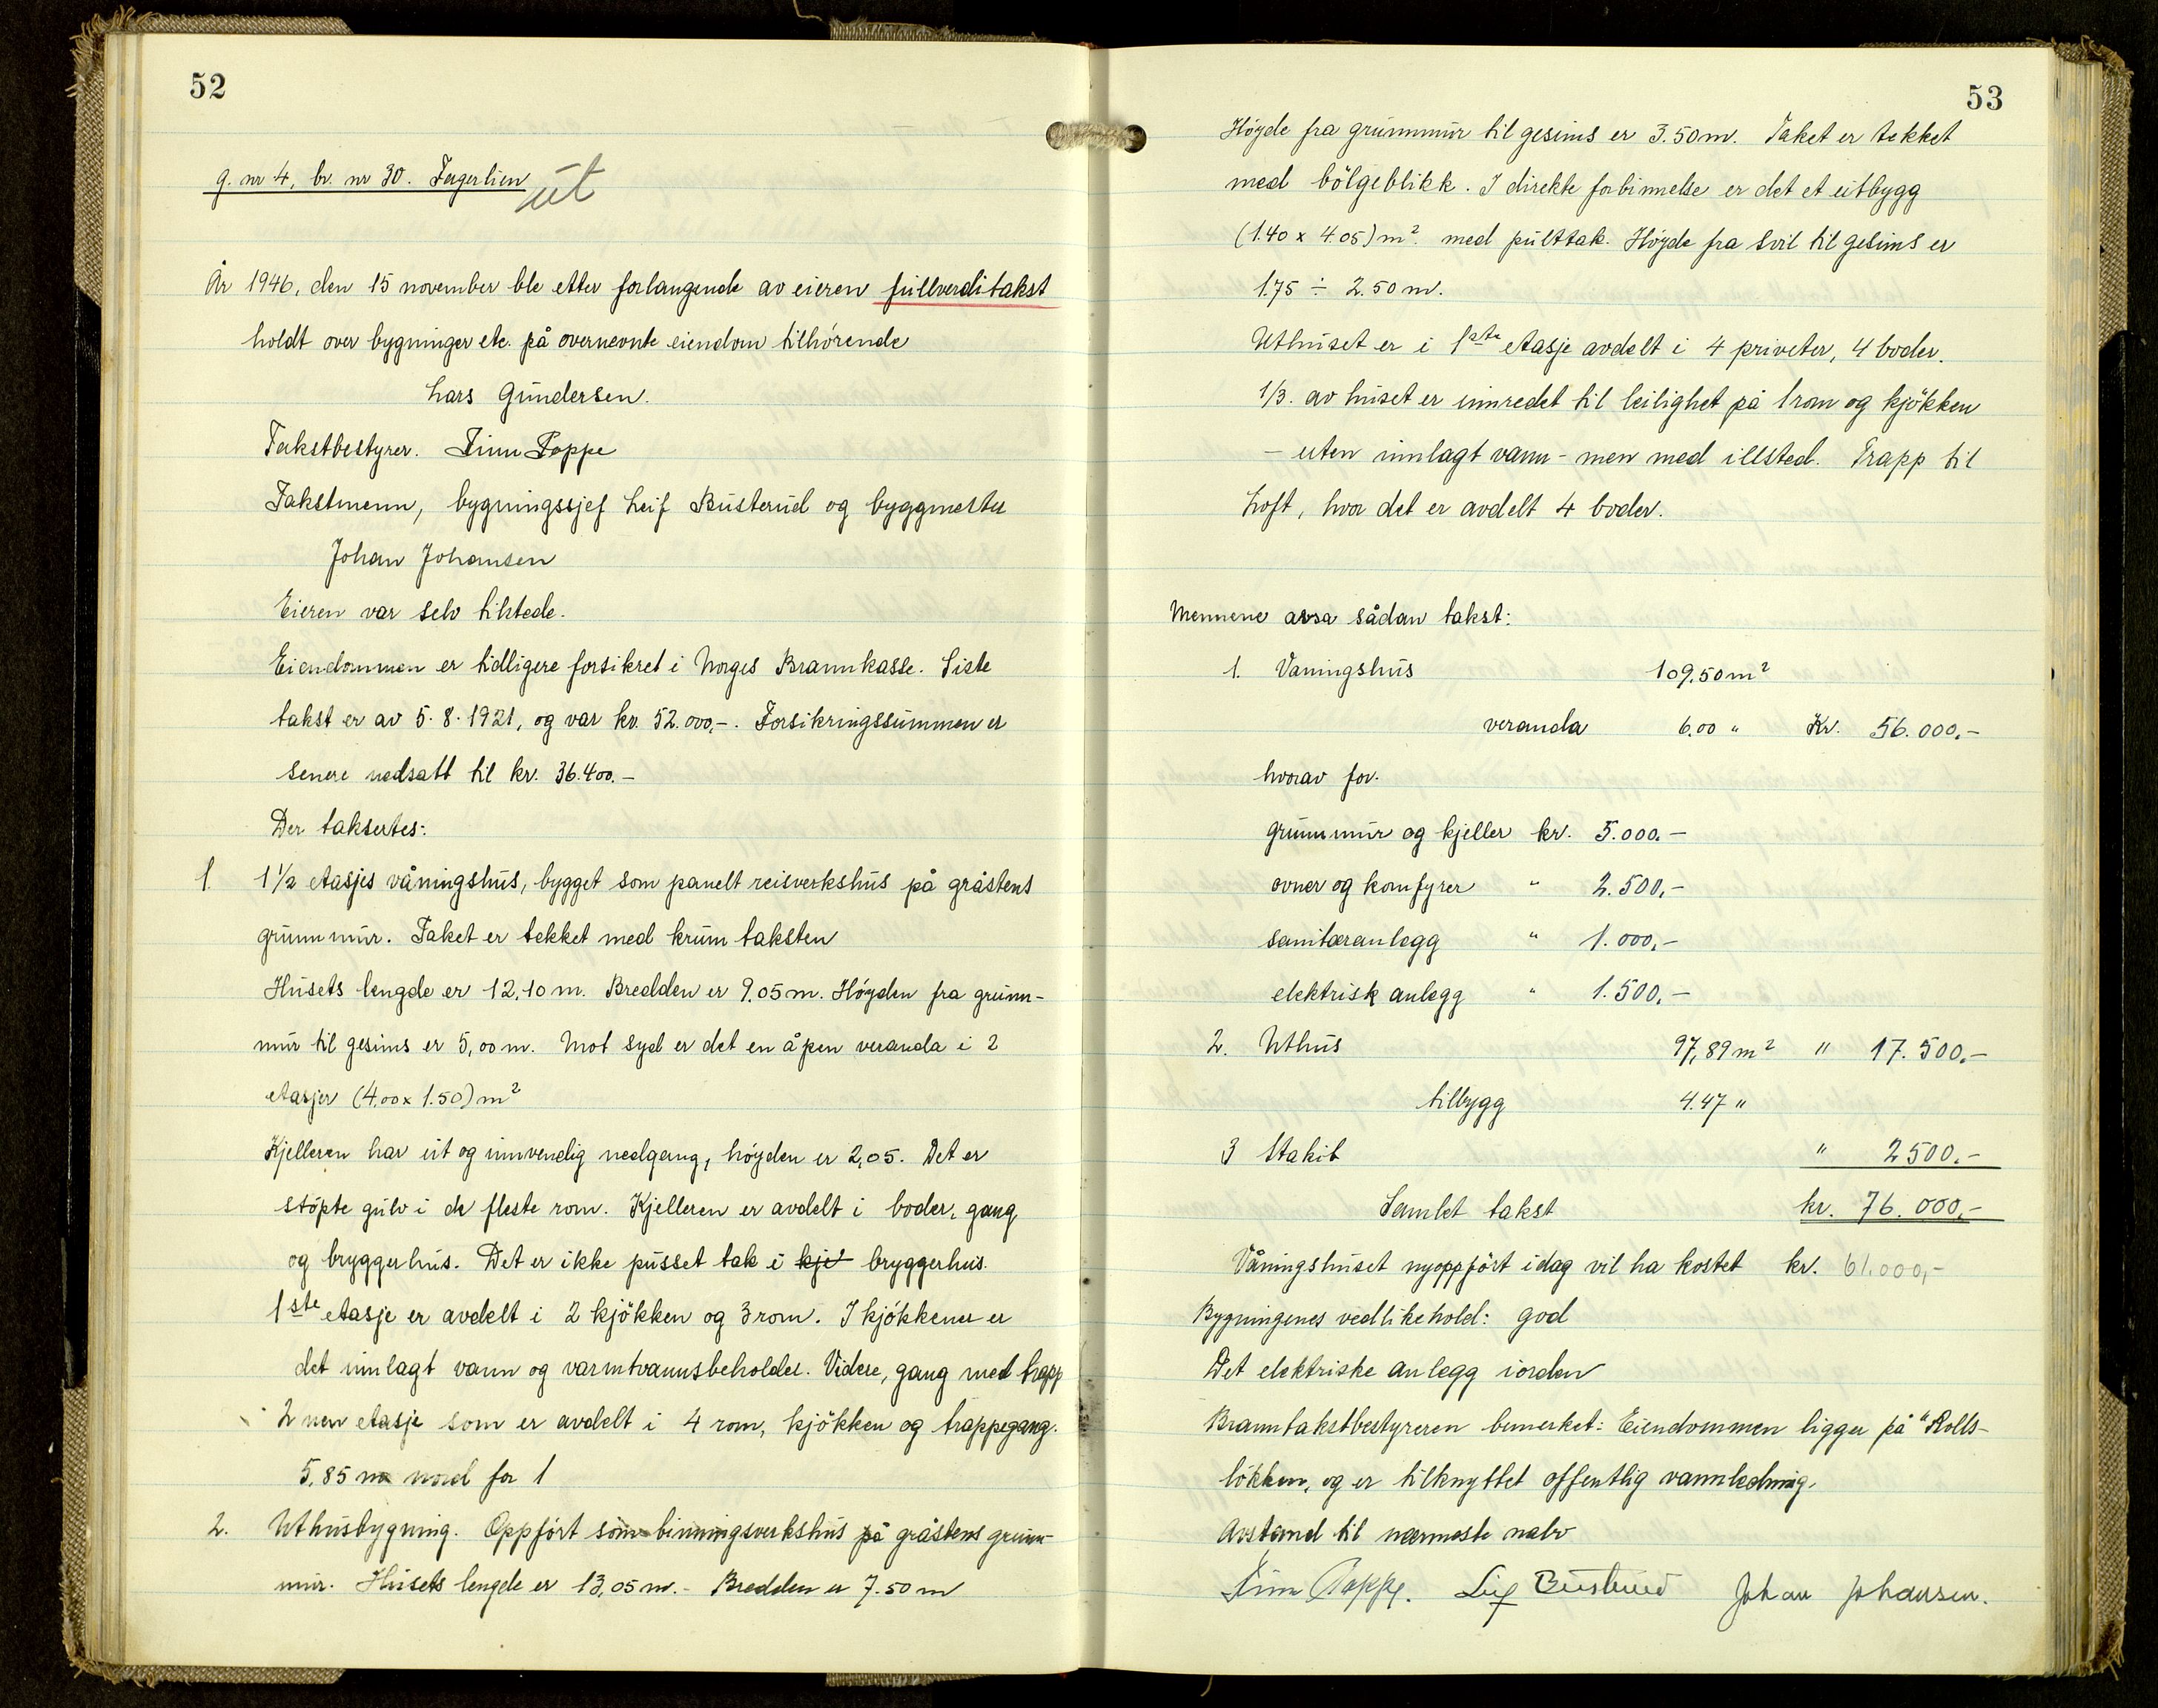 52
g. nr 4, br. nr 30. Fagerlien
ut
År 1946, den 15 november ble etter forlangende av eieren fullverditakst
holdt over bygninger etc. på overnevnte eiendom tilhörende
Lars Gundersen.
Takstbestyrer. Finn Poppe
Takstmenn, bygningssjef Leif Busterud og byggmester
Johan Johansen
Eieren var selv tilstede.
Eiendommen er tidligere forsikret i Norges Brannkasse. Siste
takst er av 5.8.1921, og var kr. 52.000,-. Forsikringssummen er
senere nedsatt til kr. 36.400.-
Der taksertes:
1. 1½ etasjes våningshus, bygget som panelt reisverkshus på gråstens
grunnmur. Taket er tekket med krum taksten
Husets lengde er 12,10 m. Bredden er 9.05 m. Höyden fra grunn-
mur til gesims er 5,00 m. Mot syd er det en åpen veranda i 2
etasjer (4.00 x 1.50) m²
Kjelleren har ut og innvendig nedgang, höyden er 2,05. Det er
stöpte gulv i de fleste rom. Kjelleren er avdelt i boder, gang
og bryggerhus. Det er ikke pusset tak i kje bryggerhus.
1ste etasje er avdelt i 2 kjökken og 3 rom. I kjökkener er
det innlagt vann og varmtvannsbeholder. Videre, gang med trapp
2 nen etasje som er avdelt i 4 rom, kjökken og trappegang.
5,85 m nord for 1
2. Uthusbygning. Oppfört som binningsverkshus på gråstens grunn-
mur. Husets lengde er 13,05 m. - Bredden er 7.50 m
53
Höyde fra grunnmur til gesims er 3.50 m. Taket er tekket
med bölgeblikk. I direkte forbinnelse er det et utbygg
(1.40 x 4.05) m². med pulttak. Höyde fra svil til gesims er
1.75 ÷ 2.50 m.
Uthuset er i 1ste etasje avdelt i 4 priveter, 4 boder.
1/3. av huset er innredet til leilighet på 1 rom og kjökken
- uten innlagt vann - men med illsted. Trapp til
Loft, hvor det er avdelt 4 boder.
Mennene avsa sådan takst:
1. Vaningshus 109,50 m²
veranda 6.00 " Kr. 56.000,-
hvorav for.
grunnmur og kjeller kr. 5.000.-
ovner og komfyrer " 2.500,-
sanitæranlegg " 1.000,-
elektrisk anlegg " 1.500,-
2. Uthus 97,89 m² " 17.500.-
tilbygg 4.47 "
3 Stakit " 2500.-
Samlet takst kr. 76.000,-
Våningshuset nyoppfört idag vil ha kostet kr. 61.000,-
Bygningenes vedlikehold: god
Det elektriske anlegg iorden
Branntakstbestyreren bemerket: Eiendommen ligger på "Rolls-
lökken, og er tilknyttet offentlig vannledning.
Avstand til nærmeste nabo
Finn Poppe. Leif Busterud Johan Johansen.